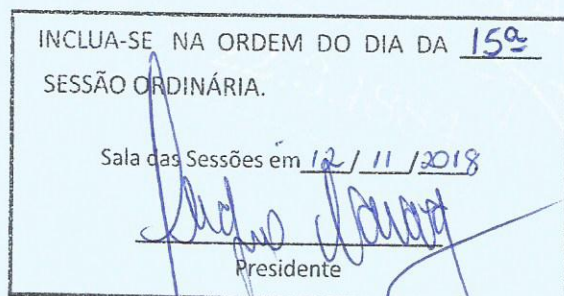 INCLUA-SE NA ORDEM DO DIA DA 15ª
SESSÃO ORDINÁRIA.
Sala das Sessões em 12 / 11 / 2018
Presidente